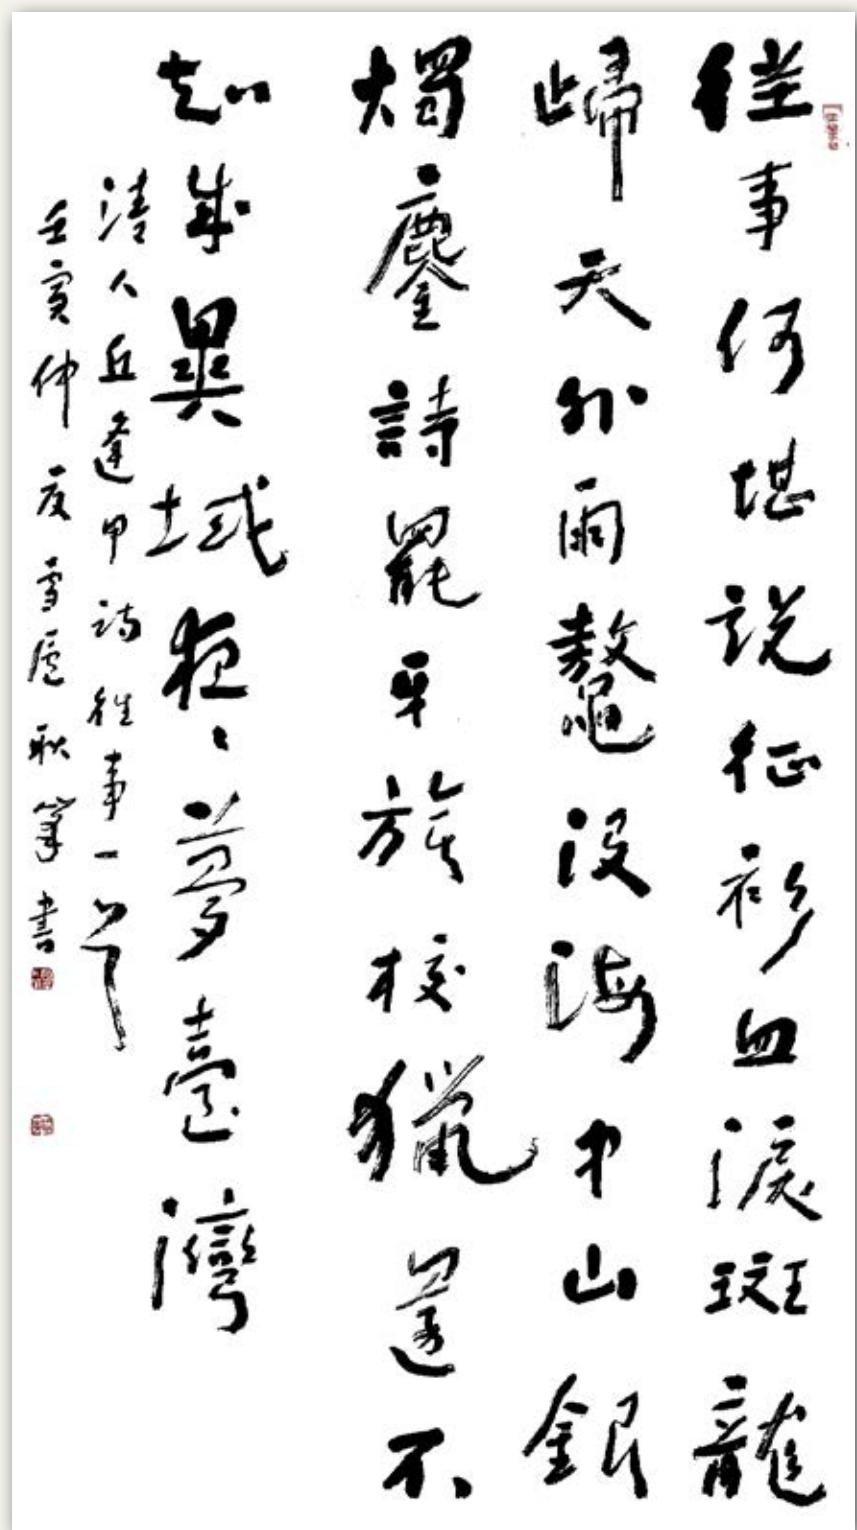 往事何堪說征衫血淚斑龍
歸天外雨鼇没海中山銀
燭鏖詩罷牙旗校獵還不
知成異域夜々夢臺灣
清人丘逢甲詩往事一首
壬寅仲夏雪耿書